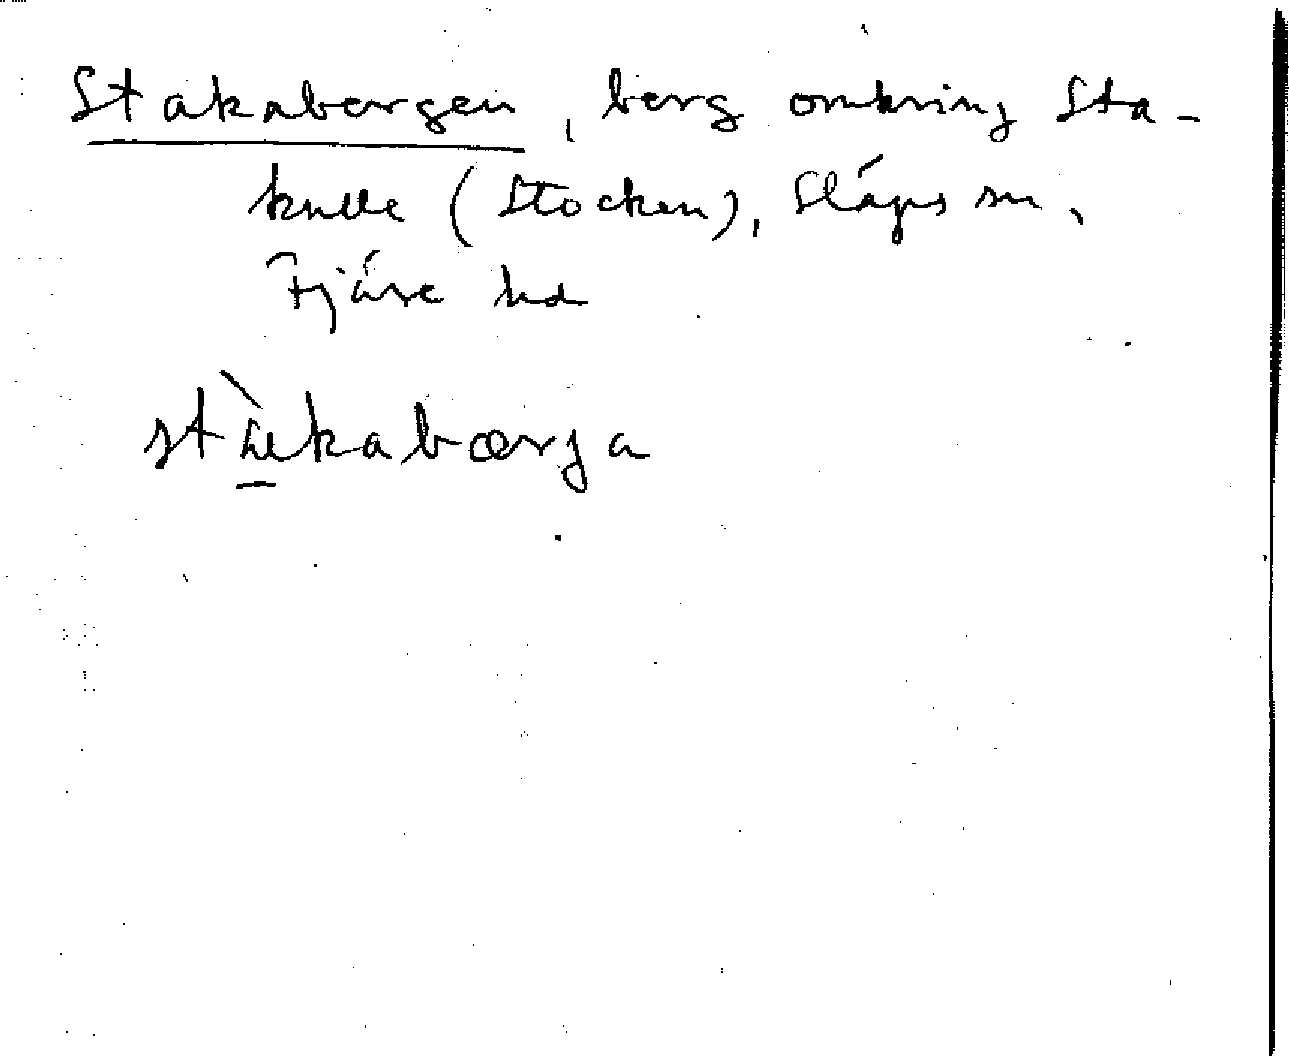 Stakabergen, berg omkring Sta-
kulle (Stocken), Släps sn,
Fjäre hd
stàkabærja